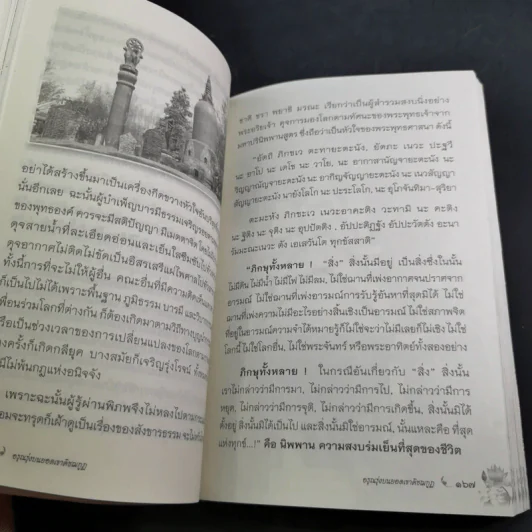 อย่าได้สร้างขึ้นมาเป็นเครื่องกีดขวางหัวใจ
นั้นอีกเลย ฉะนั้นผู้บำเพ็ญบารมีธรรมเจริญ
ของพุทธองค์ ควรจะมีสติปัญญา มีเมตตาจิต โดย
ดุจสายน้ำที่ละเอียดอ่อนและเย็นใส
ดุจอากาศไม่ติดไม่ขัดเป็นอิสรเสรีแผ่ไพศาล
ทั้งนี้การที่จะไม่ให้ผู้อื่น คณะอื่นที่มีความคิด
ก็เป็นไปไม่ได้เพราะพื้นฐาน ภูมิธรรม บารมี และ
เพื่อนร่วมโลกที่ต่างกัน ก็ต้องเกิดมาตามวิถีทาง
หรือเป็นช่วงเวลาของการเปลี่ยนแปลงของโลก
ครั้งก็เกิดกลียุค บางสมัยก็เจริญรุ่งโรจน์ ทั้ง
มีไม่พ้นกฎแห่งอนิจจัง
เพราะฉะนั้นผู้รู้ผ่านพิภพจึงไม่หลงไปตาม
ย่อมจะทรุดก็เฝ้าดูเป็นเรื่องของสังขารธรรม
อรุณรุ่งบนยอดเขาคิชฌกูฏ
ชาติ ชรา พยาธิ มรณะ เรียกว่าเป็นผู้สำรวมสงบนิ่งอย่าง
พระอริยเจ้า ดุจการมองโลกตามทัศนะของพระพุทธเจ้าจาก
มหาปรินิพพานสูตร ซึ่งถือว่าเป็นหัวใจของพระพุทธศาสนา ดังนี้
"อัตถิ ภิกขเว ตะทายะตะนัง, ยัตถะ เนวะ ปะฐวี
นะ อาโป นะ เตโช นะ วาโย, นะ อากาสานัญจายะตะนัง นะ
วิญญาณัญจายะตะนัง นะ อากิญจัญญายะตะนัง นะ เนวะ
สัญญานาสัญญายะตะนัง นายังโลโก นะ ปะระโลโก, นะ อุโภจันทิมา-สุริยา
ตะมะหัง ภิกขะเว เนวะอาคะติง วะทามิ นะ คะติง
นะ ฐิติง นะ จุติง นะ อุปปัตติง , อัปปะติฏฐัง อัปปะวัตตัง อะนา
รัมมะณะเนวะ ตัง เอเสวันโต ทุกขัสสาติ"
"ภิกษุทั้งหลาย ! "สิ่ง" สิ่งนั้นมีอยู่ เป็นสิ่งซึ่งในนั้น
ไม่มีดิน ไม่มีน้ำ ไม่มีไฟ ไม่มีลม, ไม่ใช่ฌานที่เพ่งอากาศจนปราศจาก
อารมณ์ ไม่ใช่ฌานที่เพ่งอารมณ์การรับรู้อันหาที่สุดมิได้ ไม่ใช่
ฌานที่เพ่งความไม่มีอะไรอย่างสิ้นเชิงเป็นอารมณ์ ไม่ใช่สภาพจิต
ที่อยู่ในอารมณ์ความจำได้หมายรู้ก็ไม่ใช่จะว่าไม่มีเลยก็ไม่เชิง ไม่ใช่
โลกนี้ ไม่ใช่โลกอื่น, ไม่ใช่พระจันทร์ หรือพระอาทิตย์ทั้งสองอย่าง
ภิกษุทั้งหลาย ! ในกรณีอันเกี่ยวกับ "สิ่ง" สิ่งนั้น
เราไม่กล่าวว่ามีการมา, ไม่กล่าวว่ามีการไป, ไม่กล่าวว่ามีการ
หยุด, ไม่กล่าวว่ามีการจุติ, ไม่กล่าวว่ามีการเกิดขึ้น, สิ่งนั้นมิได้
ตั้งอยู่ สิ่งนั้นมิได้เป็นไป และสิ่งนั้นมิใช่อารมณ์, นั่นแหละคือ ที่สุด
แห่งทุกข์...!" คือ นิพพาน ความสงบร่มเย็นที่สุดของชีวิต
อรุณรุ่งบนยอดเขาคิชฌกูฏ ๑๖๗